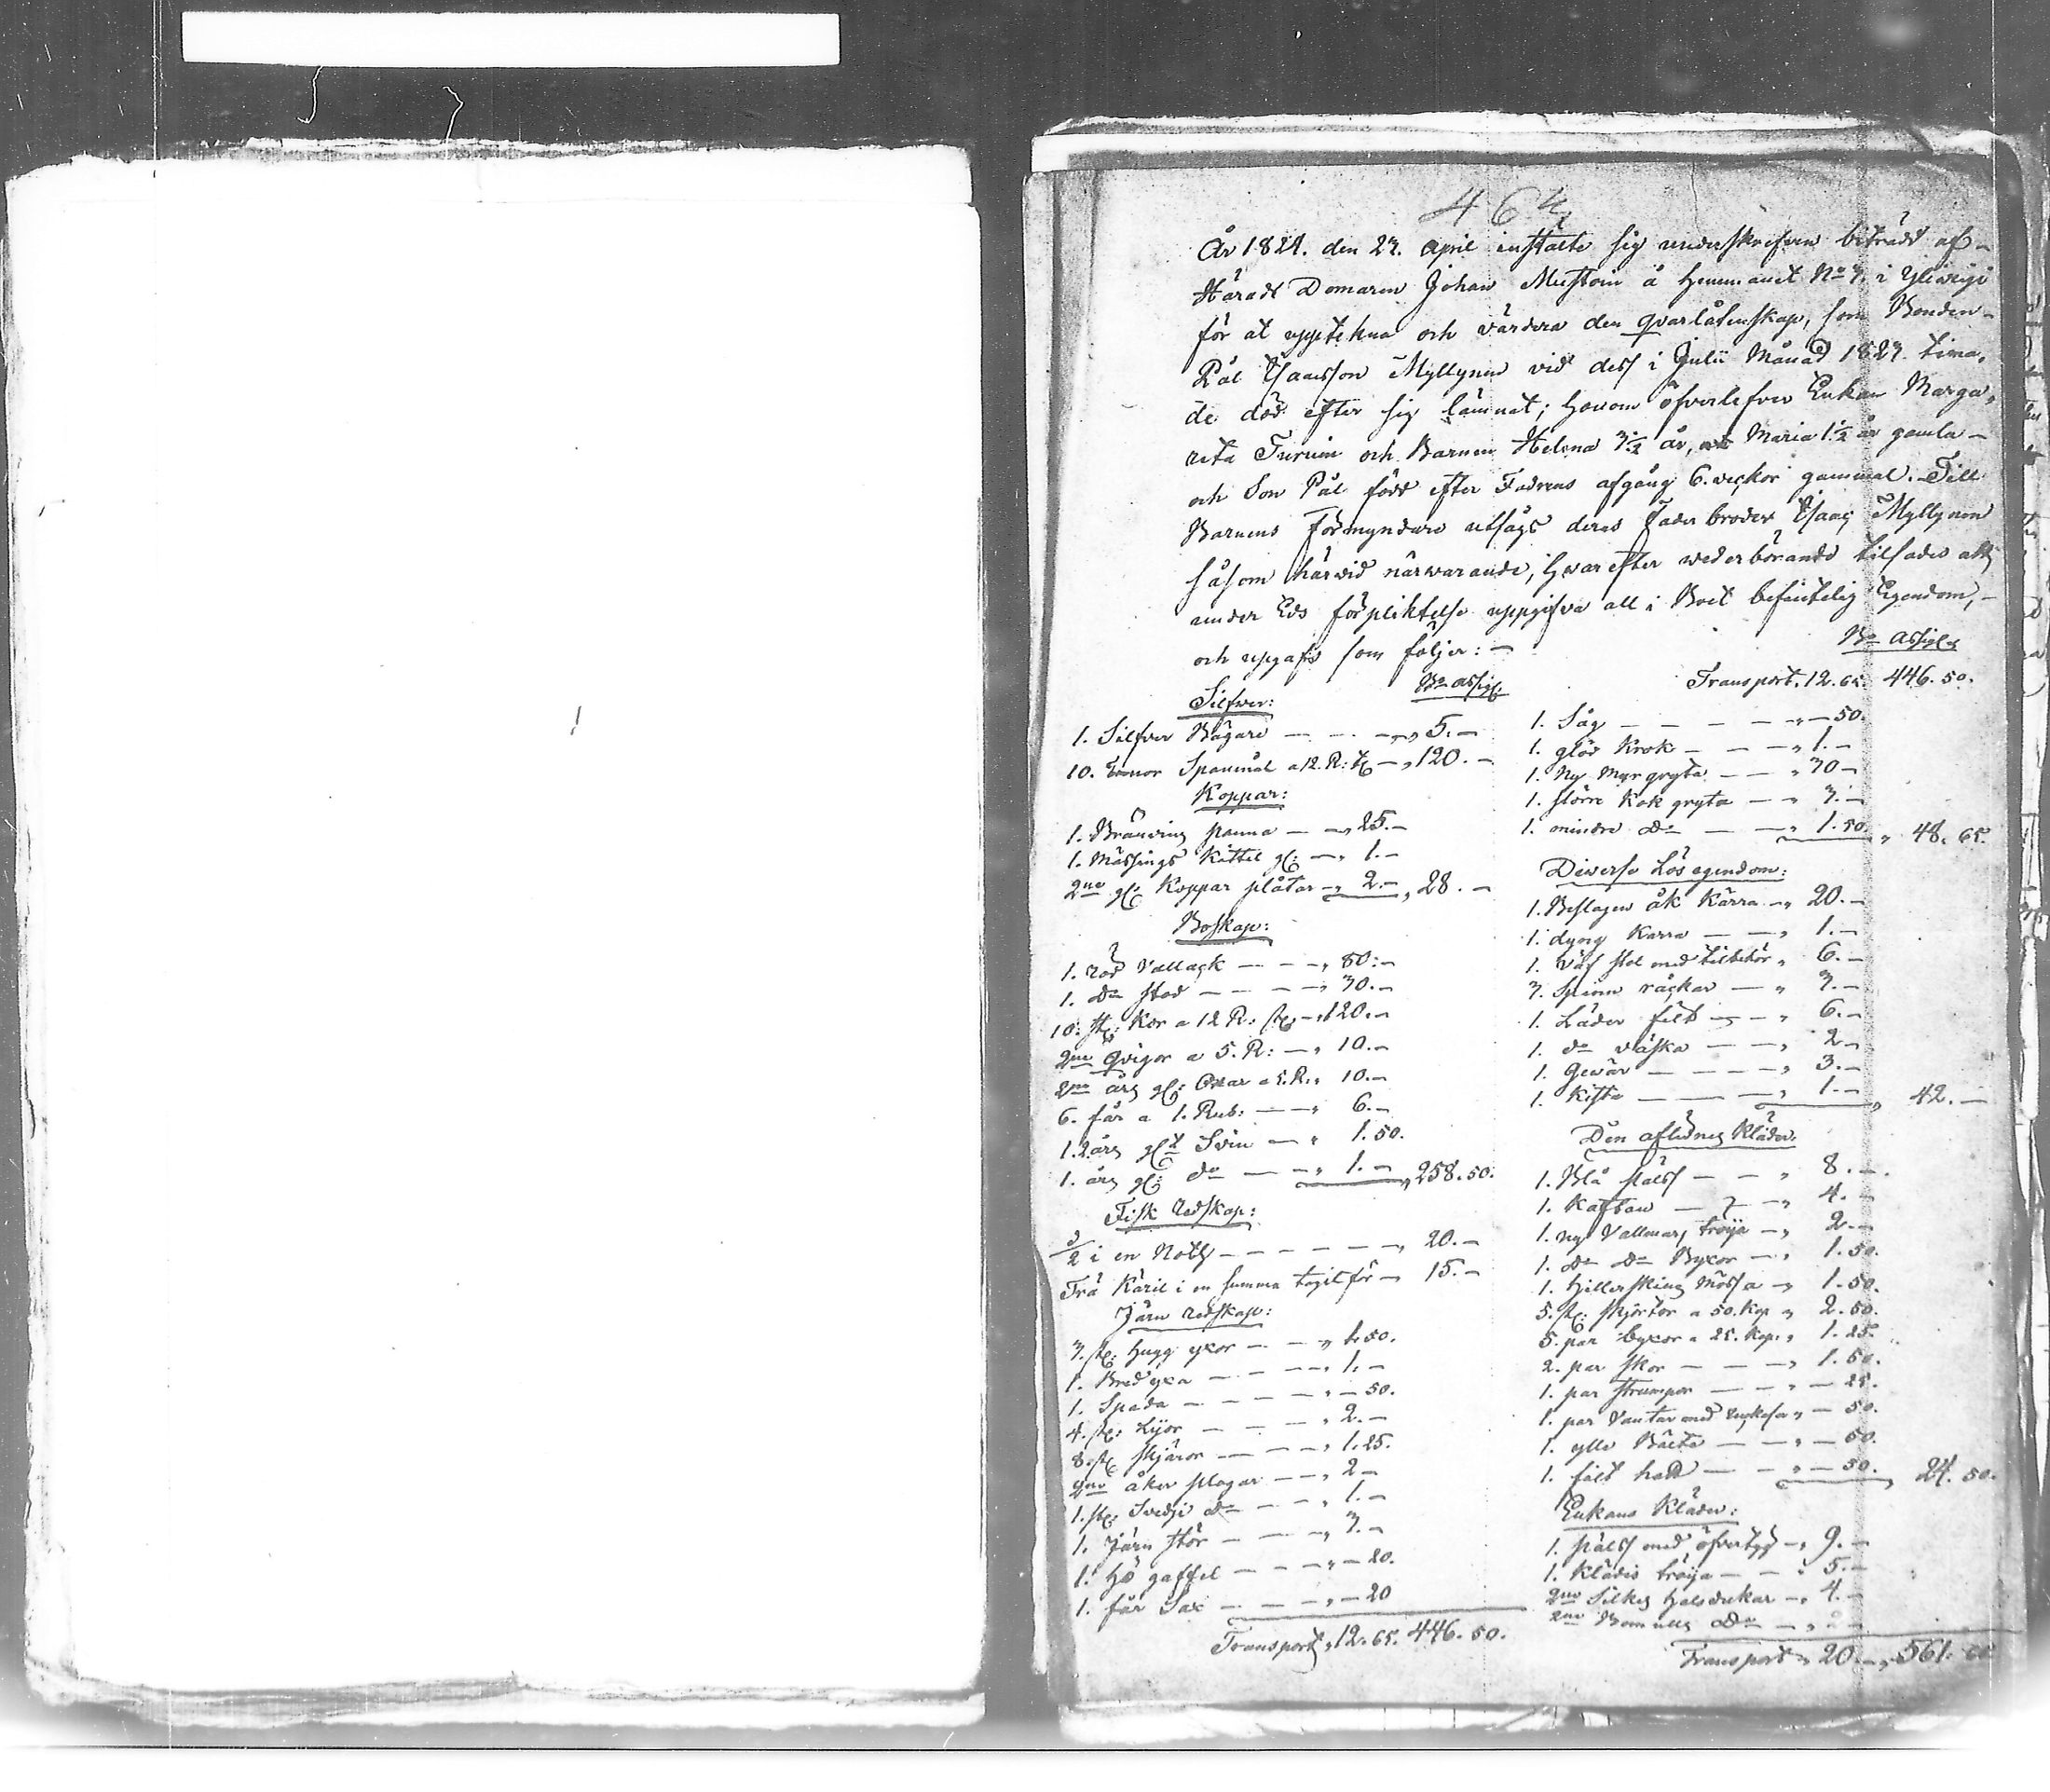 464
År 1824. den 23. April instälte sig underskrefven biträdd af
Härads Domaren Johan Mustoin å Hemmanet No 3. i
för at upptekna och värdera den qvarlåtenskap, som Bonden
Pål Isaacsson Myllynen vid dess i Julii Månad 1823. tima-
de död efter sig lämnat; honom öfverlefver Enkan Marga-
reta Turuin och Barnen Helena 3 1/2 år, Maria 1 1/2 år gamla
och Son Pål född efter Fadrens afgång 6. veckor gammal. Till
Barnens Förmyndare utsågs deras Fader broder Isaac Myllynen
såsom härvid närvarande, hvarefter wederbörande tilsades att
under Eds förpliktelse uppgifva all i Boet befintelig Egendom,
och uppgafs som följer:
Silfwer: Bo Assig:
1. Silfver Bägare 5.
10. Spanmål a 12. R: 120.
Koppar:
1. Bränvins panna 25.
1. Mässings Kittel gl: 1.
2ne gl: Koppar plåtar 2. 28.
Boskap:
1. röd Vallack 80.
1. do Stod 30.
10. st: Kor a 12 R: st: 120.
2ne Qvigor a 5. R: 10.
2ne års gl: Oxar a 5. R. 10.
6. får a 1. Rub: 6.
1. 2 års glt Svin 1.50.
1. års gl: do 1. 258.50.
Fisk redskap:
i en Noth 20.
Trä Käril i en summa tagit för 15.
Järn redskap:
3. st: hugg yxor 1.50.
1. Bred yxa 1.
1. Spada 50.
4. st: Lijor 2.
8. st: skjäror 1.25.
2ne åker plogar 2
1. st: Svedje do 1.
1. Järn stör 3.
1. Hö gaffel 20.
1. får Sax 20
Transport, 12.65. 446.50.
Bo Assig:
Transport. 12.65. 446.50.
1. Såg 50.
1. glöd Krok 1.
1. Ny Myr gryta 30
1. större Kok gryta 3.
1. mindre do 1.50. 48.65.
Diverse Lösegendom:
1. Beslagen åk Kärra 20.
1. dyng Karra 1.
1. Väf stol med tilbehör 6.
3. Spinn råckar 3.
1. Läder fäll 6.
1. do väska 2
1. Gevär 3.
1. Kista 1. 42.
Den aflidnes Kläder:
1. Blå pälss 8.
1. Kaftan 4.
1. ny Vallmars tröija 2.
1. do do Byxor 1.50.
1. Hillerskins Mössa 1.50.
5. st: skjortor a 50. Kop 2.50.
5. par byxor a 25. Kop. 1.25.
2. par skor 1.50.
1. par strumpor 25.
1. par Vantar med 50.
1. ylle Bälte 50.
1. fält hatt 50. 24.50.
Enkans Kläder:
1. pälss med öfvertyg 9.
1. Klädes tröija 5.
2ne Silkes Halsdukar 4.
2ne Bomulls do 2
Transport 20. 561.65